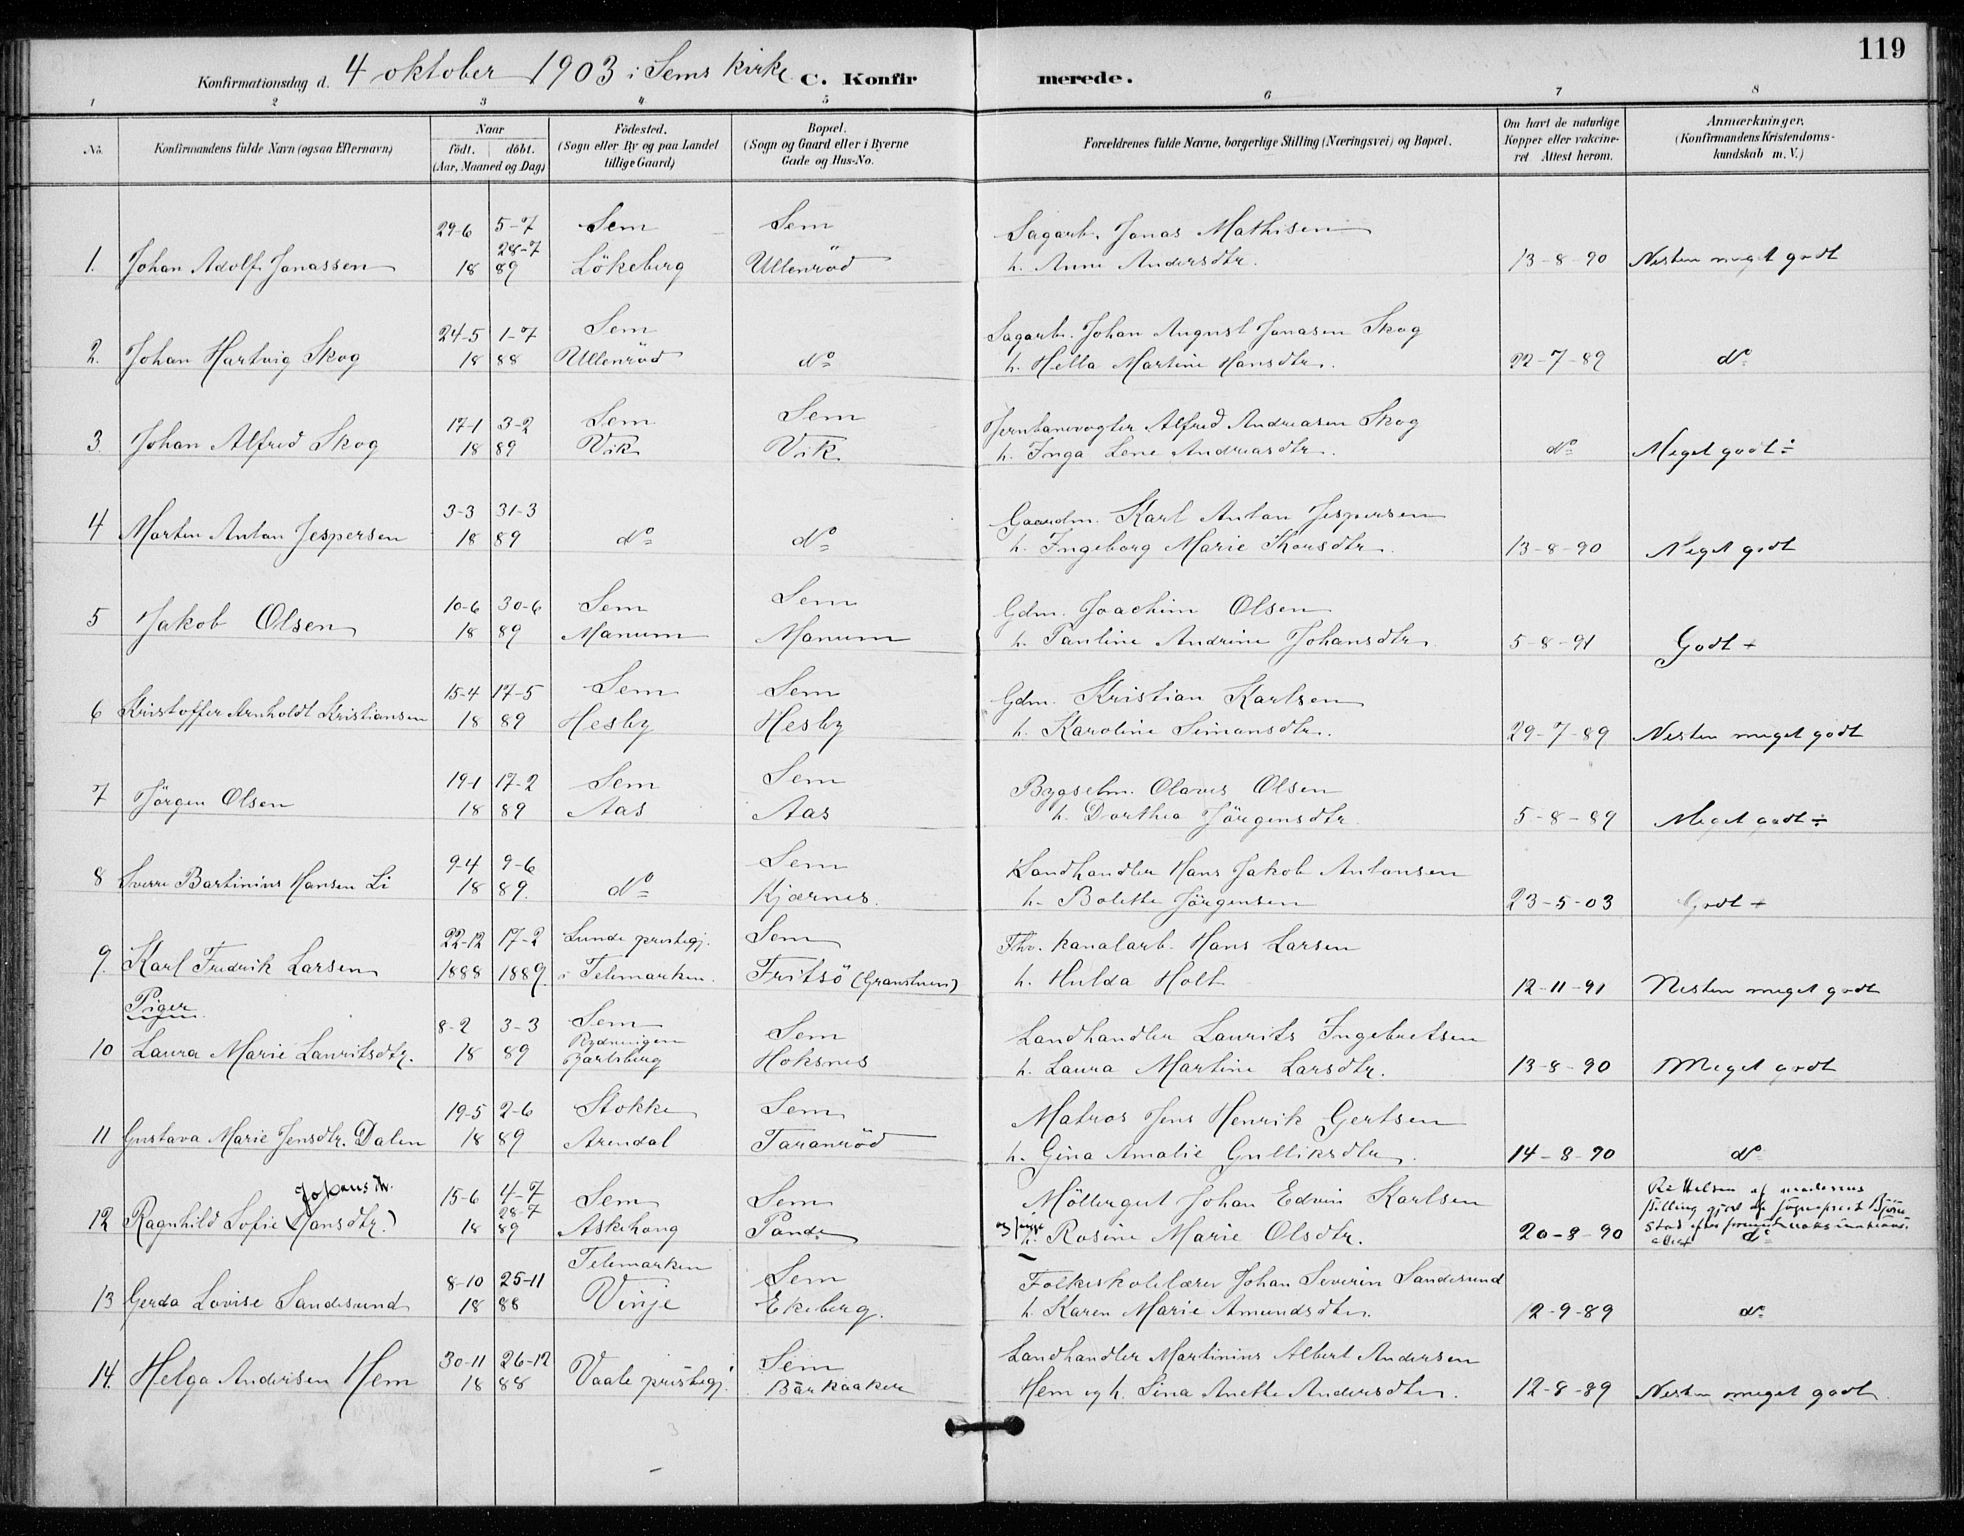 119
Konfirmationsdag d. 4 oktober 1903 i Sems kirke C. Konfirmerede.
1 2 3 4 5 6 7 8
No. Konfirmandens fulde Navn (ogsaa Efternavn) Naar født. døbt. (Aar, Maaned og Dag) Fødested. (Sogn eller By og paa Landet tillige Gaard) Bopæl. (Sogn og Gaard eller i Byerne Gade og Hus-No. Forældrenes fulde Navne, borgerlige Stilling (Næringsvei) og Bopæl. Om havt de naturlige Kopper eller vakcineret Attest herom. Anmærkninger. (Konfirmandens Kristendomskundskab m. V.)
29-6 5-7 Sem Sem Sagarb. Jonas Mathisen
28-7
1. Johan Adolf Jonassen 18 89 Lökeberg Ullenröd h. Anne Andersdtr. 13-8-90 Nesten meget godt
24-5 1-7 Sem Sagarb. Johan August Jonasen Skog
2. Johan Hartvig Skog 18 88 Ullenröd do h. Hella Martine Hansdtr. 22-7-89 do
17-1 3-2 Sem Sem Jernbanevogter Alfred Andreasen Skog
3. Johan Alfred Skog 18 89 Vik Vik h. Inga Lene Andreasdtr. do Meget godt ÷
3-3 31-3 Gaardm. Karl Anton Jespersen
4 Morten Anton Jespersen 18 89 do do h. Ingeborg Marie Thorsdtr. 13-8-90 Meget godt
10-6 30-6 Sem Sem Gdm. Joachim Olsen
5 Jakob Olsen 18 89 Manum Manum h. Pauline Andrine Johansdtr. 5-8-91 Godt +
15-4 17-5 Sem Sem Gdm. Kristian Karlsen
6 Kristoffer Arnholdt Kristiansen 18 89 Hesby Hesby h. Karoline Simonsdtr. 29-7-89 Nesten meget godt
19-1 17-2 Sem Sem Bygselm. Olaves Olsen
7 Jörgen Olsen 18 89 Aas Aas h. Dorthea Jörgensdtr. 5-8-89 Meget godt ÷
9-4 9-6 Sem Landhandler Hans Jakob Antonsen
8 Sverre Bartinius Hansen Li 18 89. do Kjærnes. h. Bolette Jörgensen 23-5-03 Godt +
22-12 17-2 Lunde prestegj. Sem Fhv. kanalarb. Hans Larsen
9. Karl Fredrik Larsen 1888 1889. i Telemarken. Fritsö (Granstuen) h. Hulda Holt 12-11-91 Nesten meget godt
Piger
8-2 3-3 Sem Sem Landhandler Laurits Ingebretsen
Rydningen
10 Laura Marie Lauritsdtr. 18 89 Barlsberg Hoksnes h. Laura Martine Larsdtr. 13-8-90 Meget godt
19-5 2-6 Stokke Sem Matros Jens Henrik Gertsen
11 Gustava Marie Jensdtr. Dalen 18 89 Arendal Taranröd h. Gina Amalie Gulliksdtr. 14-8-90 do
Johansdtr. 15-6 4-7 Sem Sem Möllergut Johan Edvin Karlsen Rettelsen af moderens
28-7 stilling gjort af sogneprest
12 Ragnhild Sofie (Hansdtr.) 18 89 Askehaug Pande og pige h. Rosine Marie Olsdtr. 20-8-90 do
8-10 25-11 Telemarken Sem Folkeskolelærer Johan Severin Sandesund
13 Gerda Lovise Sandesund 18 88 Vinje Ekeberg. h. Karen Marie Amundsdtr. 12-9-89 do
30-11 26-12 Sem Landhandler Martinius Albert Andersen
14. Helga Andersen Hem 18 88 Vaale prestegj. Barkaaker Hem og h. Sina Anette Andersdtr. 12-8-89 Nesten meget godt